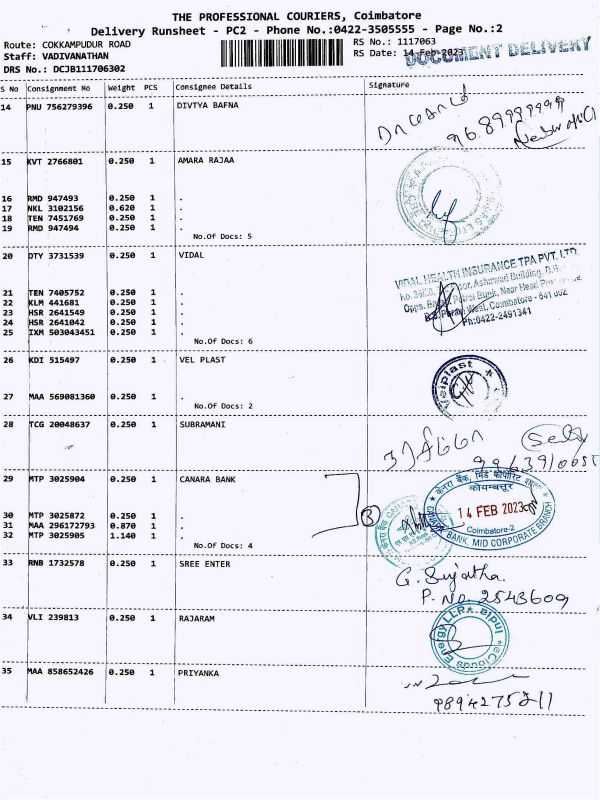 THE PROFESSIONAL COURIERS, Coimbatore
Delivery Runsheet - PC2 - Phone No.:0422-3505555 - Page No.:2
Route: COKKAMPUDUR ROAD
RS No.: 1117063
Staff: VADIVANATHAN
RS Date: 14-Feb-2023
DOCUMENT DELIVERY
DRS No.: DCJB111706302
S No Consignment No Weight PCS Consignee Details Signature
14 PNU 756279396 0.250 1 DIVTYA BAFNA
15 KVT 2766801 0.250 1 AMARA RAJAA
16 RMD 947493 0.250 1 .
17 NKL 3102156 0.620 1 .
18 TEN 7451769 0.250 1 .
19 RMD 947494 0.250 1 .
No.Of Docs: 5
20 DTY 3731539 0.250 1 VIDAL
VIDAL HEALTH INSURANCE TPA PVT. LTD.
21 TEN 7405752 0.250 1 .
22 KLM 441681 0.250 1 .
23 HSR 2641549 0.250 1 .
24 HSR 2641042 0.250 1 .
25 IXM 503043451 0.250 1 .
West, Coimbatore - 641 002
Ph:0422-2491341
No.Of Docs: 6
26 KDI 515497 0.250 1 VEL PLAST
Velplast
27 MAA 569081360 0.250 1 .
No.Of Docs: 2
28 TCG 20048637 0.250 1 SUBRAMANI
29 MTP 3025904 0.250 1 CANARA BANK
केनरा बैंक, मिड कॉर्पोरेट शाखा
कोयम्बत्तूर
14 FEB 2023
Coimbatore-2
CANARA BANK, MID CORPORATE BRANCH
30 MTP 3025872 0.250 1 .
31 MAA 296172793 0.870 1 .
32 MTP 3025905 1.140 1 .
No.Of Docs: 4
33 RNB 1732578 0.250 1 SREE ENTER
G. Sujatha.
P. No. 2543609
34 VLI 239813 0.250 1 RAJARAM
eClouds Energy LLP
35 MAA 858652426 0.250 1 PRIYANKA
9894275211